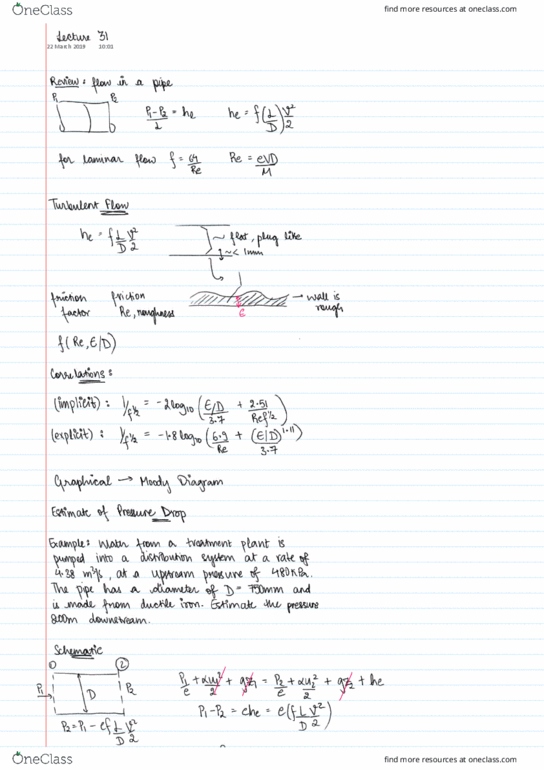 OneClass
find more resources at oneclass.com
Lecture 31
22 March 2019 10:01
Review: flow in a pipe
P1 P2
P1-P2/ρ = he he = f(L/D)V²/2
for laminar flow f = 64/Re Re = ρVD/μ
Turbulent Flow
he = f L/D V²/2
~ flat, plug like
~< 1mm
friction friction → wall is
factor Re, roughness rough
ε
f(Re, ε/D)
Correlations:
(implicit): 1/f^½ = -2log10 (ε/D/3.7 + 2.51/Ref^½)
(explicit): 1/f^½ = -1.8log10 (6.9/Re + (ε/D/3.7)^1.11)
Graphical → Moody Diagram
Estimate of Pressure Drop
Example: Water from a treatment plant is
pumped into a distribution system at a rate of
4.38 m³/s, at a upstream pressure of 480KPa.
The pipe has a diameter of D = 750mm and
is made from ductile iron. Estimate the pressure
800m downstream.
Schematic
① ②
P1 D P2
P1/ρ + αu1²/2 + gz1 = P2/ρ + αu2²/2 + gz2 + he
P1-P2 = ρhe = ρ(f L/D V²/2)
P2 = P1 - ρf L/D V²/2
OneClass
find more resources at oneclass.com